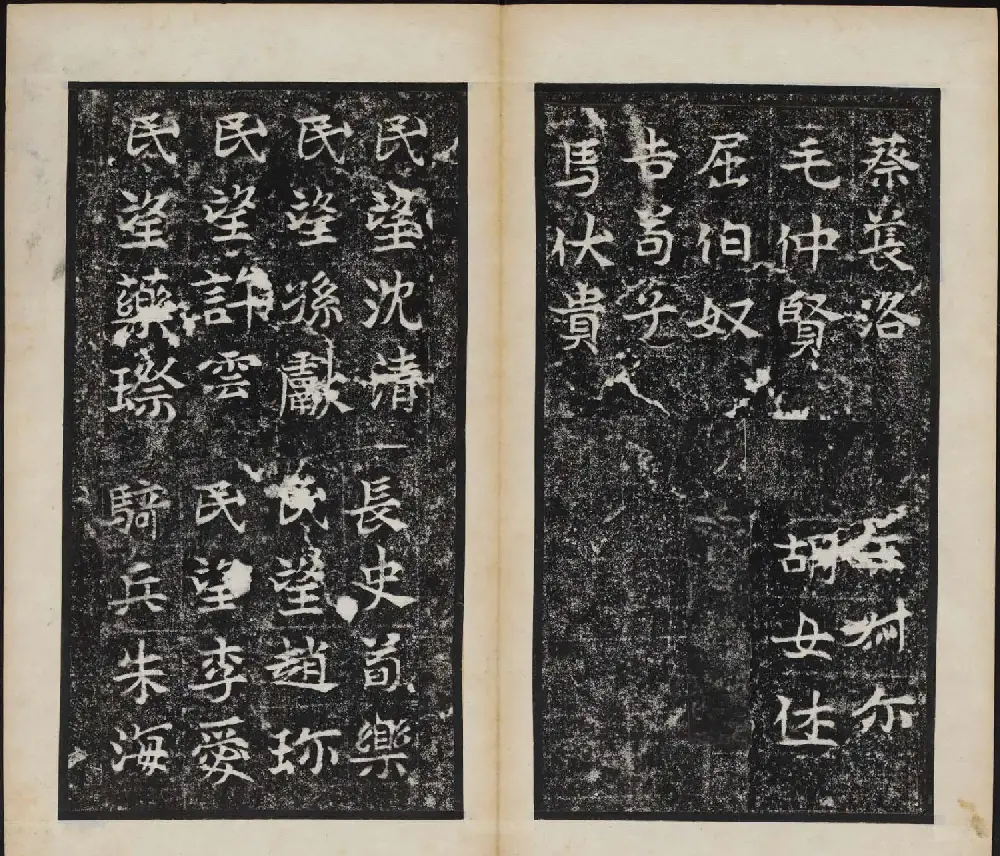 蔡萇洛 尔
毛仲賢 胡女
屈伯奴
告苟子
馬伏貴
民望沈清 長史荀樂
民望孫獻 民望趙珎
民望許雲 民望李愛
民望藥璨 騎兵朱海